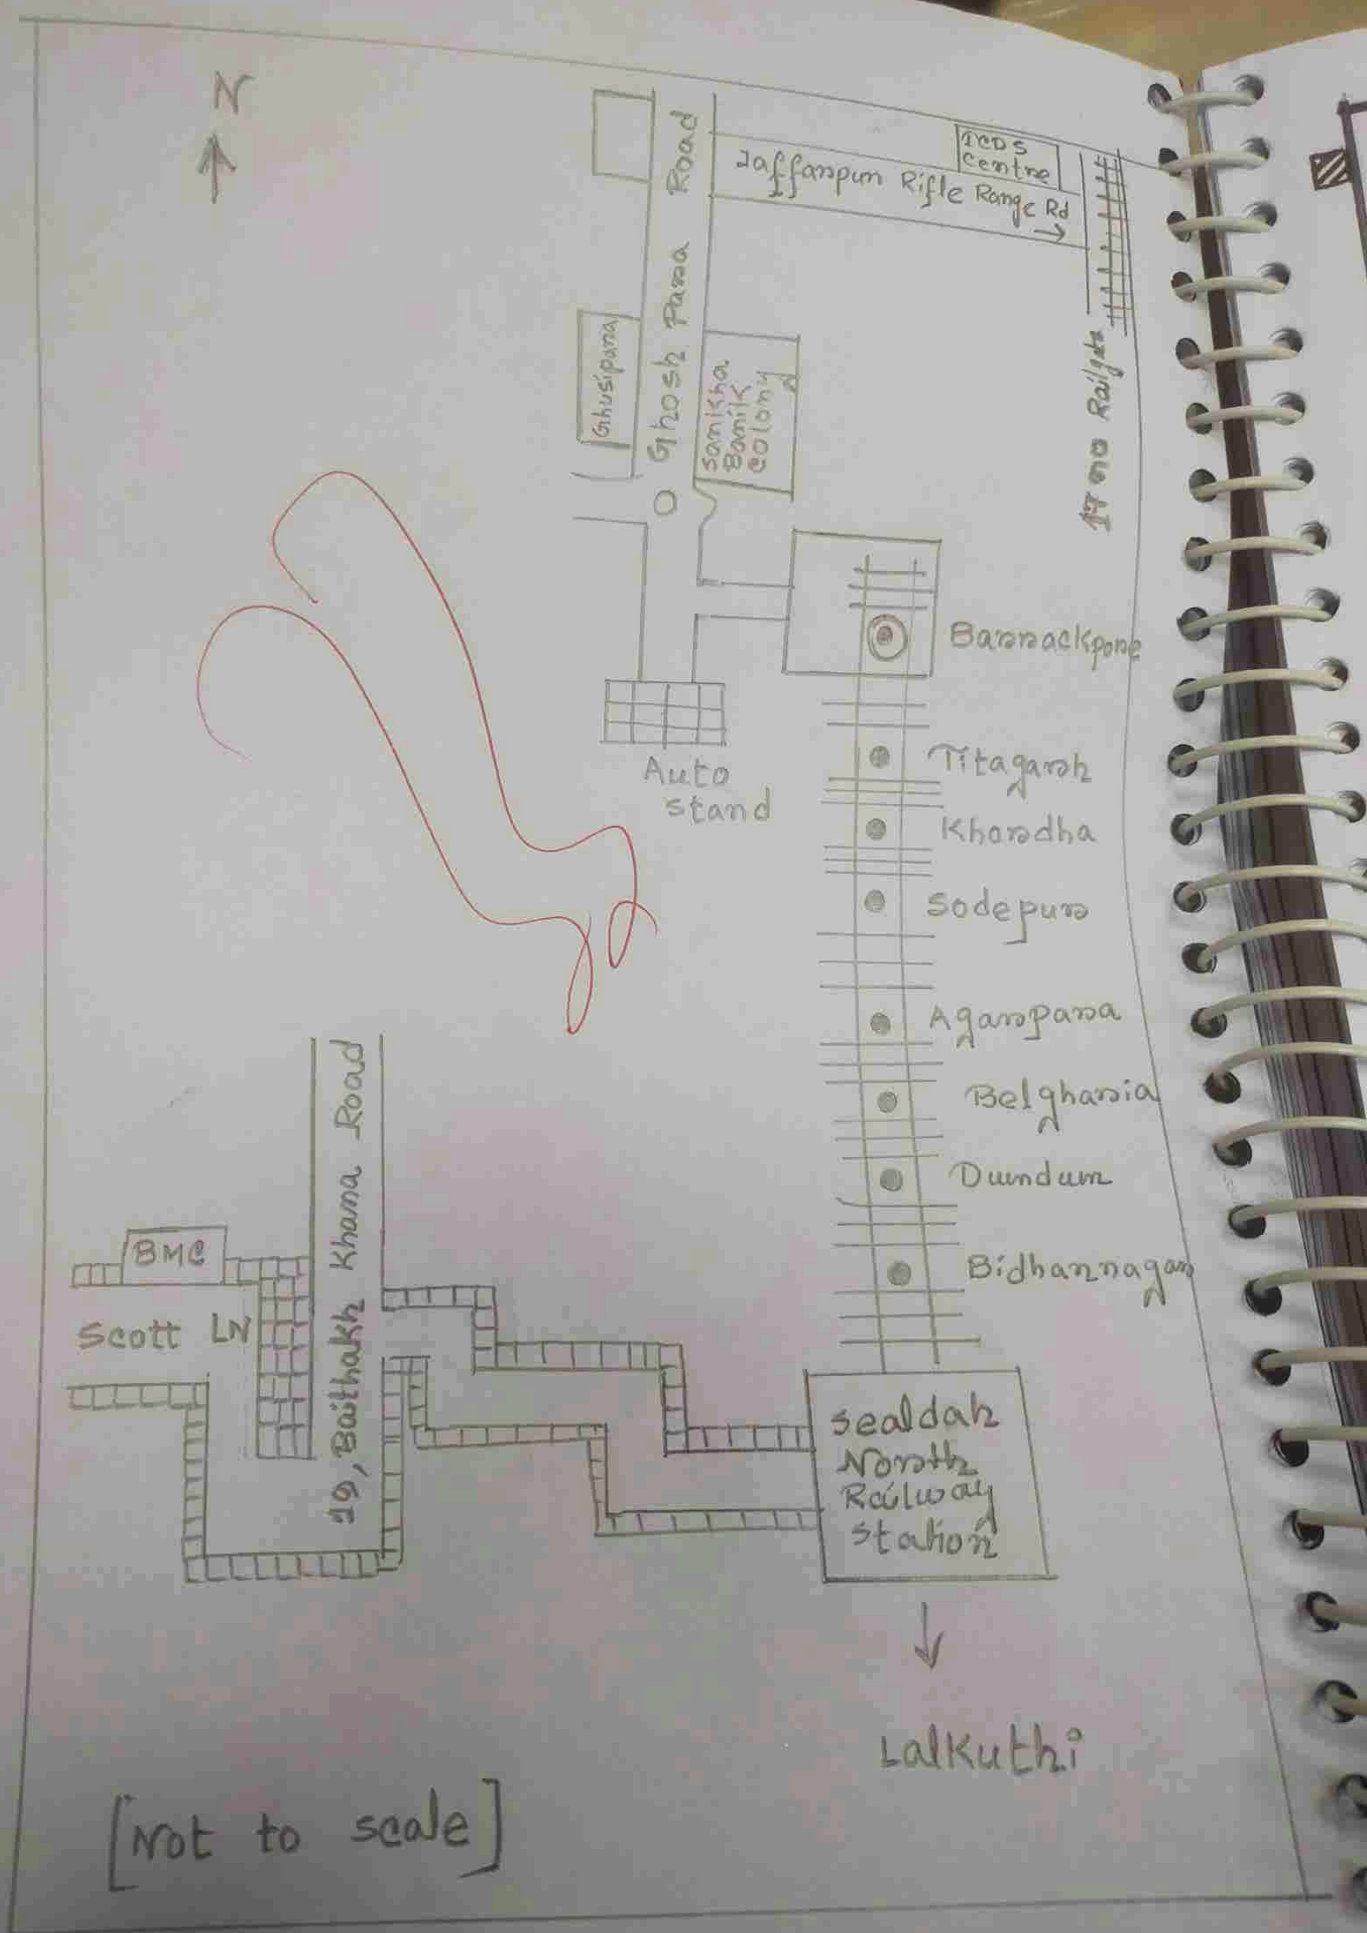 N
ICDS
Centre
Jaffarpur Rifle Range Rd
Ghosh Para Road
Ghusipara
Sankha
Banik
colony
17 no Railgate
Barrackpore
Titagarh
Auto
stand
Khardha
Sodepur
Agarpara
Belgharia
Dumdum
Bidhannagar
BMC
Scott LN
19, Baithakh Khana Road
Sealdah
North
Railway
Station
Lalkuthi
[Not to scale]